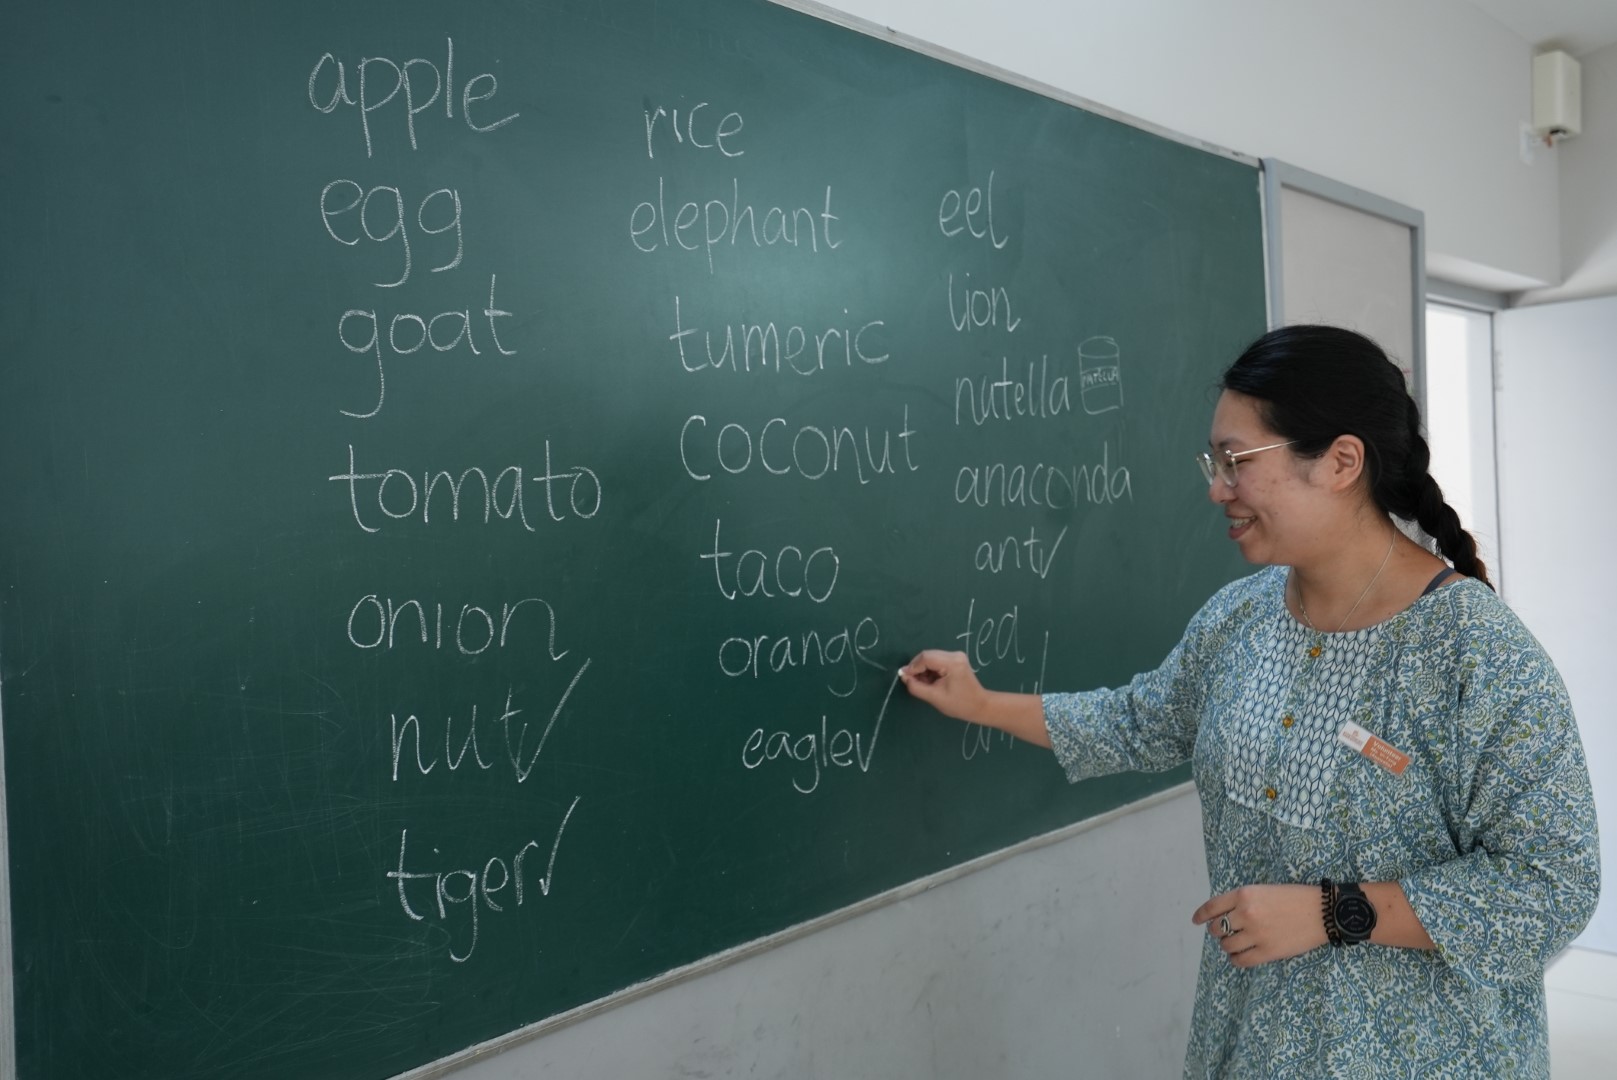 apple
egg
goat
tomato
onion
nut
tiger
rice
elephant
tumeric
coconut
taco
orange
eagle
eel
lion
nutella
NUTELLA
anaconda
ant
tea
Volunteer